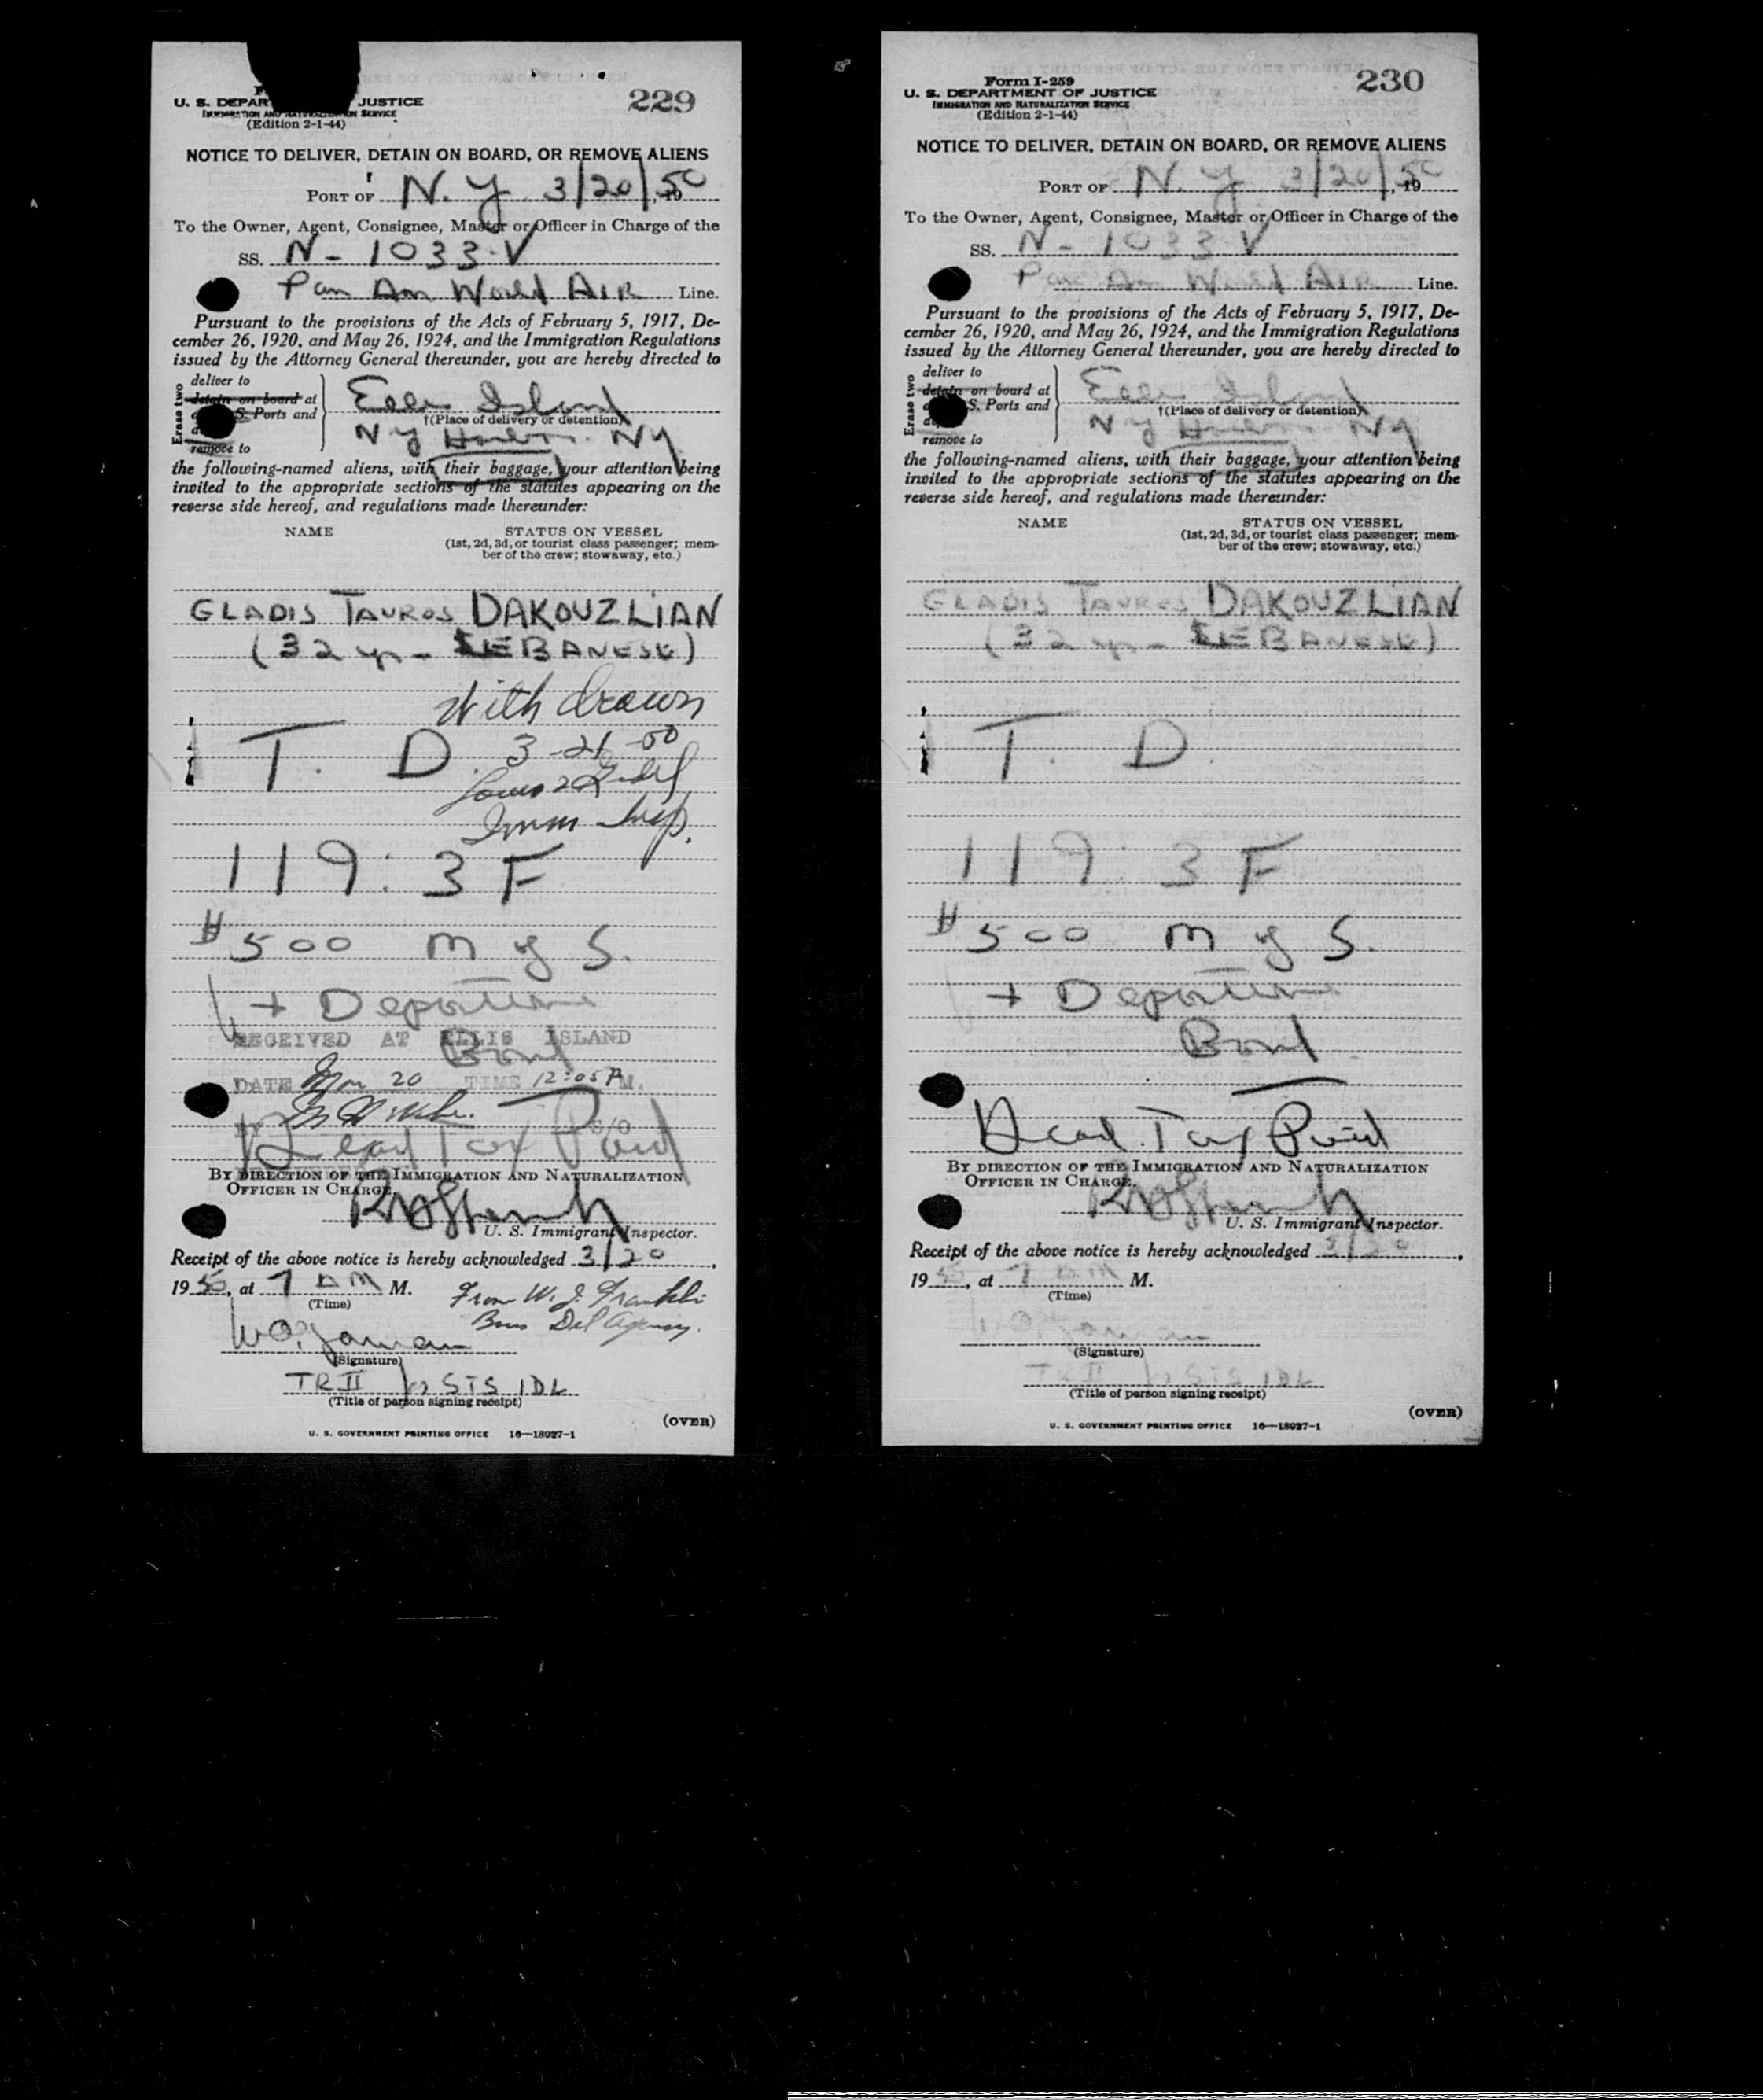 229
U. S. DEPAR JUSTICE
IMMIGRATION AND NATURALIZATION SERVICE
(Edition 2-1-44)
NOTICE TO DELIVER, DETAIN ON BOARD, OR REMOVE ALIENS
PORT OF N. Y 3/20/50, 19
To the Owner, Agent, Consignee, Master or Officer in Charge of the
SS. N-1033-V
Pan Am World AIR Line.
Pursuant to the provisions of the Acts of February 5, 1917, De-
cember 26, 1920, and May 26, 1924, and the Immigration Regulations
issued by the Attorney General thereunder, you are hereby directed to
Erase two
deliver to
detain on board at
S. Ports and
remove to
Ellis Island
†(Place of delivery or detention)
N Y Harbor. NY
the following-named aliens, with their baggage, your attention being
invited to the appropriate sections of the statutes appearing on the
reverse side hereof, and regulations made thereunder:
NAME STATUS ON VESSEL
(1st, 2d, 3d, or tourist class passenger; mem-
ber of the crew; stowaway, etc.)
GLADIS TAUROS DAKOUZLIAN
(32 yr - LEBANESE)
Withdrawn
T. D. 3-21-50
Imm Insp.
119: 3 F
#500 M & S.
+ Departure
Bond
RECEIVED AT ELLIS ISLAND
DATE Mar 20 TIME 12:05 P M.
BY
Head Tax Paid
BY DIRECTION OF THE IMMIGRATION AND NATURALIZATION
OFFICER IN CHARGE.
U. S. Immigrant Inspector.
Receipt of the above notice is hereby acknowledged 3/20,
1950, at 7 AM M.
(Time)
From W. J. Franklin
Del Agency.
(Signature)
TR II STS IDL
(Title of person signing receipt)
(OVER)
U. S. GOVERNMENT PRINTING OFFICE 16—18927-1
Form I-259
230
U. S. DEPARTMENT OF JUSTICE
IMMIGRATION AND NATURALIZATION SERVICE
(Edition 2-1-44)
NOTICE TO DELIVER, DETAIN ON BOARD, OR REMOVE ALIENS
PORT OF N. Y 3/20/50, 19
To the Owner, Agent, Consignee, Master or Officer in Charge of the
SS. N-1033 V
Pan Am World AIR Line.
Pursuant to the provisions of the Acts of February 5, 1917, De-
cember 26, 1920, and May 26, 1924, and the Immigration Regulations
issued by the Attorney General thereunder, you are hereby directed to
Erase two
deliver to
detain on board at
S. Ports and
remove to
Ellis Island
†(Place of delivery or detention)
N Y Harbor NY
the following-named aliens, with their baggage, your attention being
invited to the appropriate sections of the statutes appearing on the
reverse side hereof, and regulations made thereunder:
NAME STATUS ON VESSEL
(1st, 2d, 3d, or tourist class passenger; mem-
ber of the crew; stowaway, etc.)
GLADIS TAUROS DAKOUZLIAN
(32 yr - LEBANESE)
T. D.
119: 3 F
#500 M & S.
+ Departure
Bond
Head Tax Paid
BY DIRECTION OF THE IMMIGRATION AND NATURALIZATION
OFFICER IN CHARGE.
U. S. Immigrant Inspector.
Receipt of the above notice is hereby acknowledged 3/20,
1950, at 7 AM M.
(Time)
(Signature)
TR II STS IDL
(Title of person signing receipt)
(OVER)
U. S. GOVERNMENT PRINTING OFFICE 16—18927-1